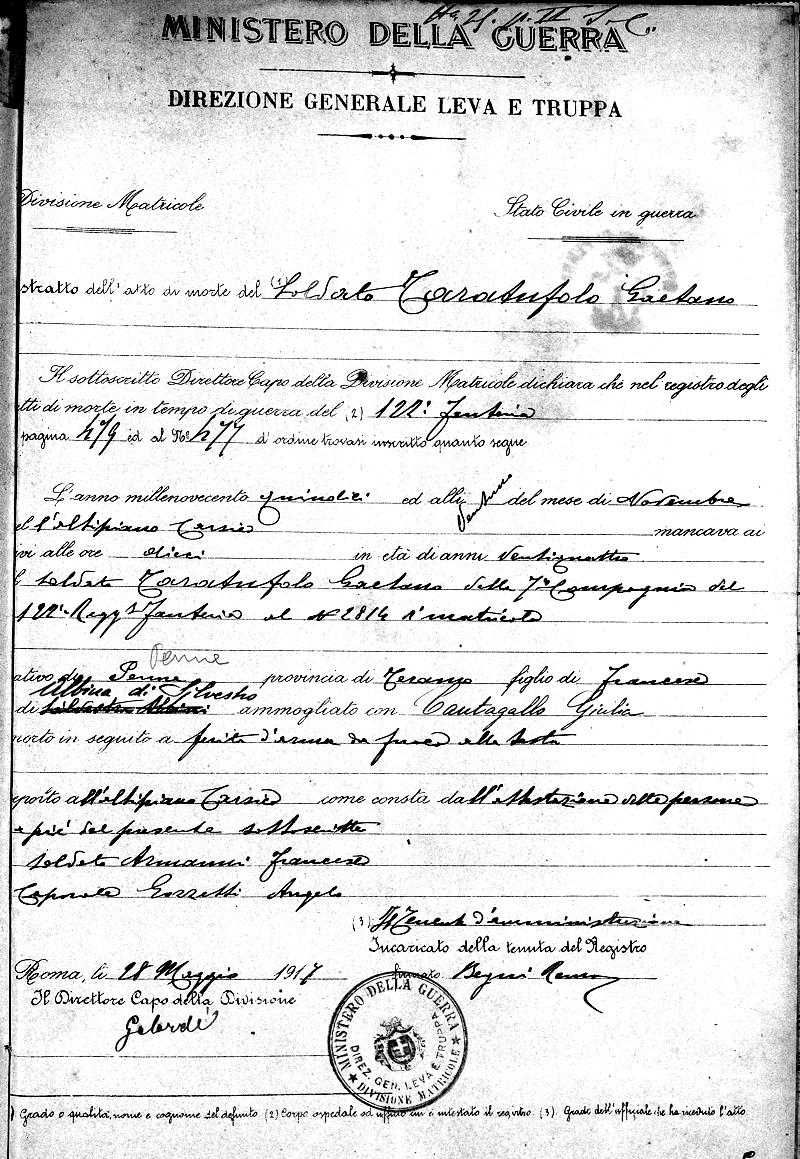 MINISTERO DELLA GUERRA
DIREZIONE GENERALE LEVA E TRUPPA
Divisione Matricole
Stato Civile in guerra
stratto dell'atto di morte del (1) Soldato Taratufolo Gaetano
Il sottoscritto Direttore Capo della Divisione Matricole dichiara che nel registro degli
tti di morte in tempo di guerra del (2) 122° Fanteria
pagina 479 ed al N° 477 d'ordine trovasi inscritto quanto segue
L'anno millenovecento quindici ed alli del mese di Novembre
l'altipiano Carsico mancava ai
ivi alle ore dieci in età di anni ventiquattro
soldato Taratufolo Gaetano della 7a Compagnia del
122° Regg. Fanteria al N° 2814 di matricola
Penne
ativo di Penne provincia di Teramo figlio di Francesco
Albina di Silvestro
di ammogliato con Cantagallo Giulia
morto in seguito a ferita d'arma da fuoco alla testa
epolto all'altipiano Carsico come consta dall'attestazione delle persone
a piè del presente sottoscritte
Soldato Armanni Francesco
Caporale Gozzetti Angelo
(3) Il Tenente d'amministrazione
Incaricato della tenuta del Registro
Roma, li 28 Maggio 1917 firmato
Il Direttore Capo della Divisione
MINISTERO DELLA GUERRA
DIREZ. GEN. LEVA E TRUPPA
DIVISIONE MATRICOLE
) Grado o qualità, nome e cognome del defunto (2) Corpo ospedale od ufficio cui è intestato il registro. (3). Grado dell'ufficiale che ha ricevuto l'atto